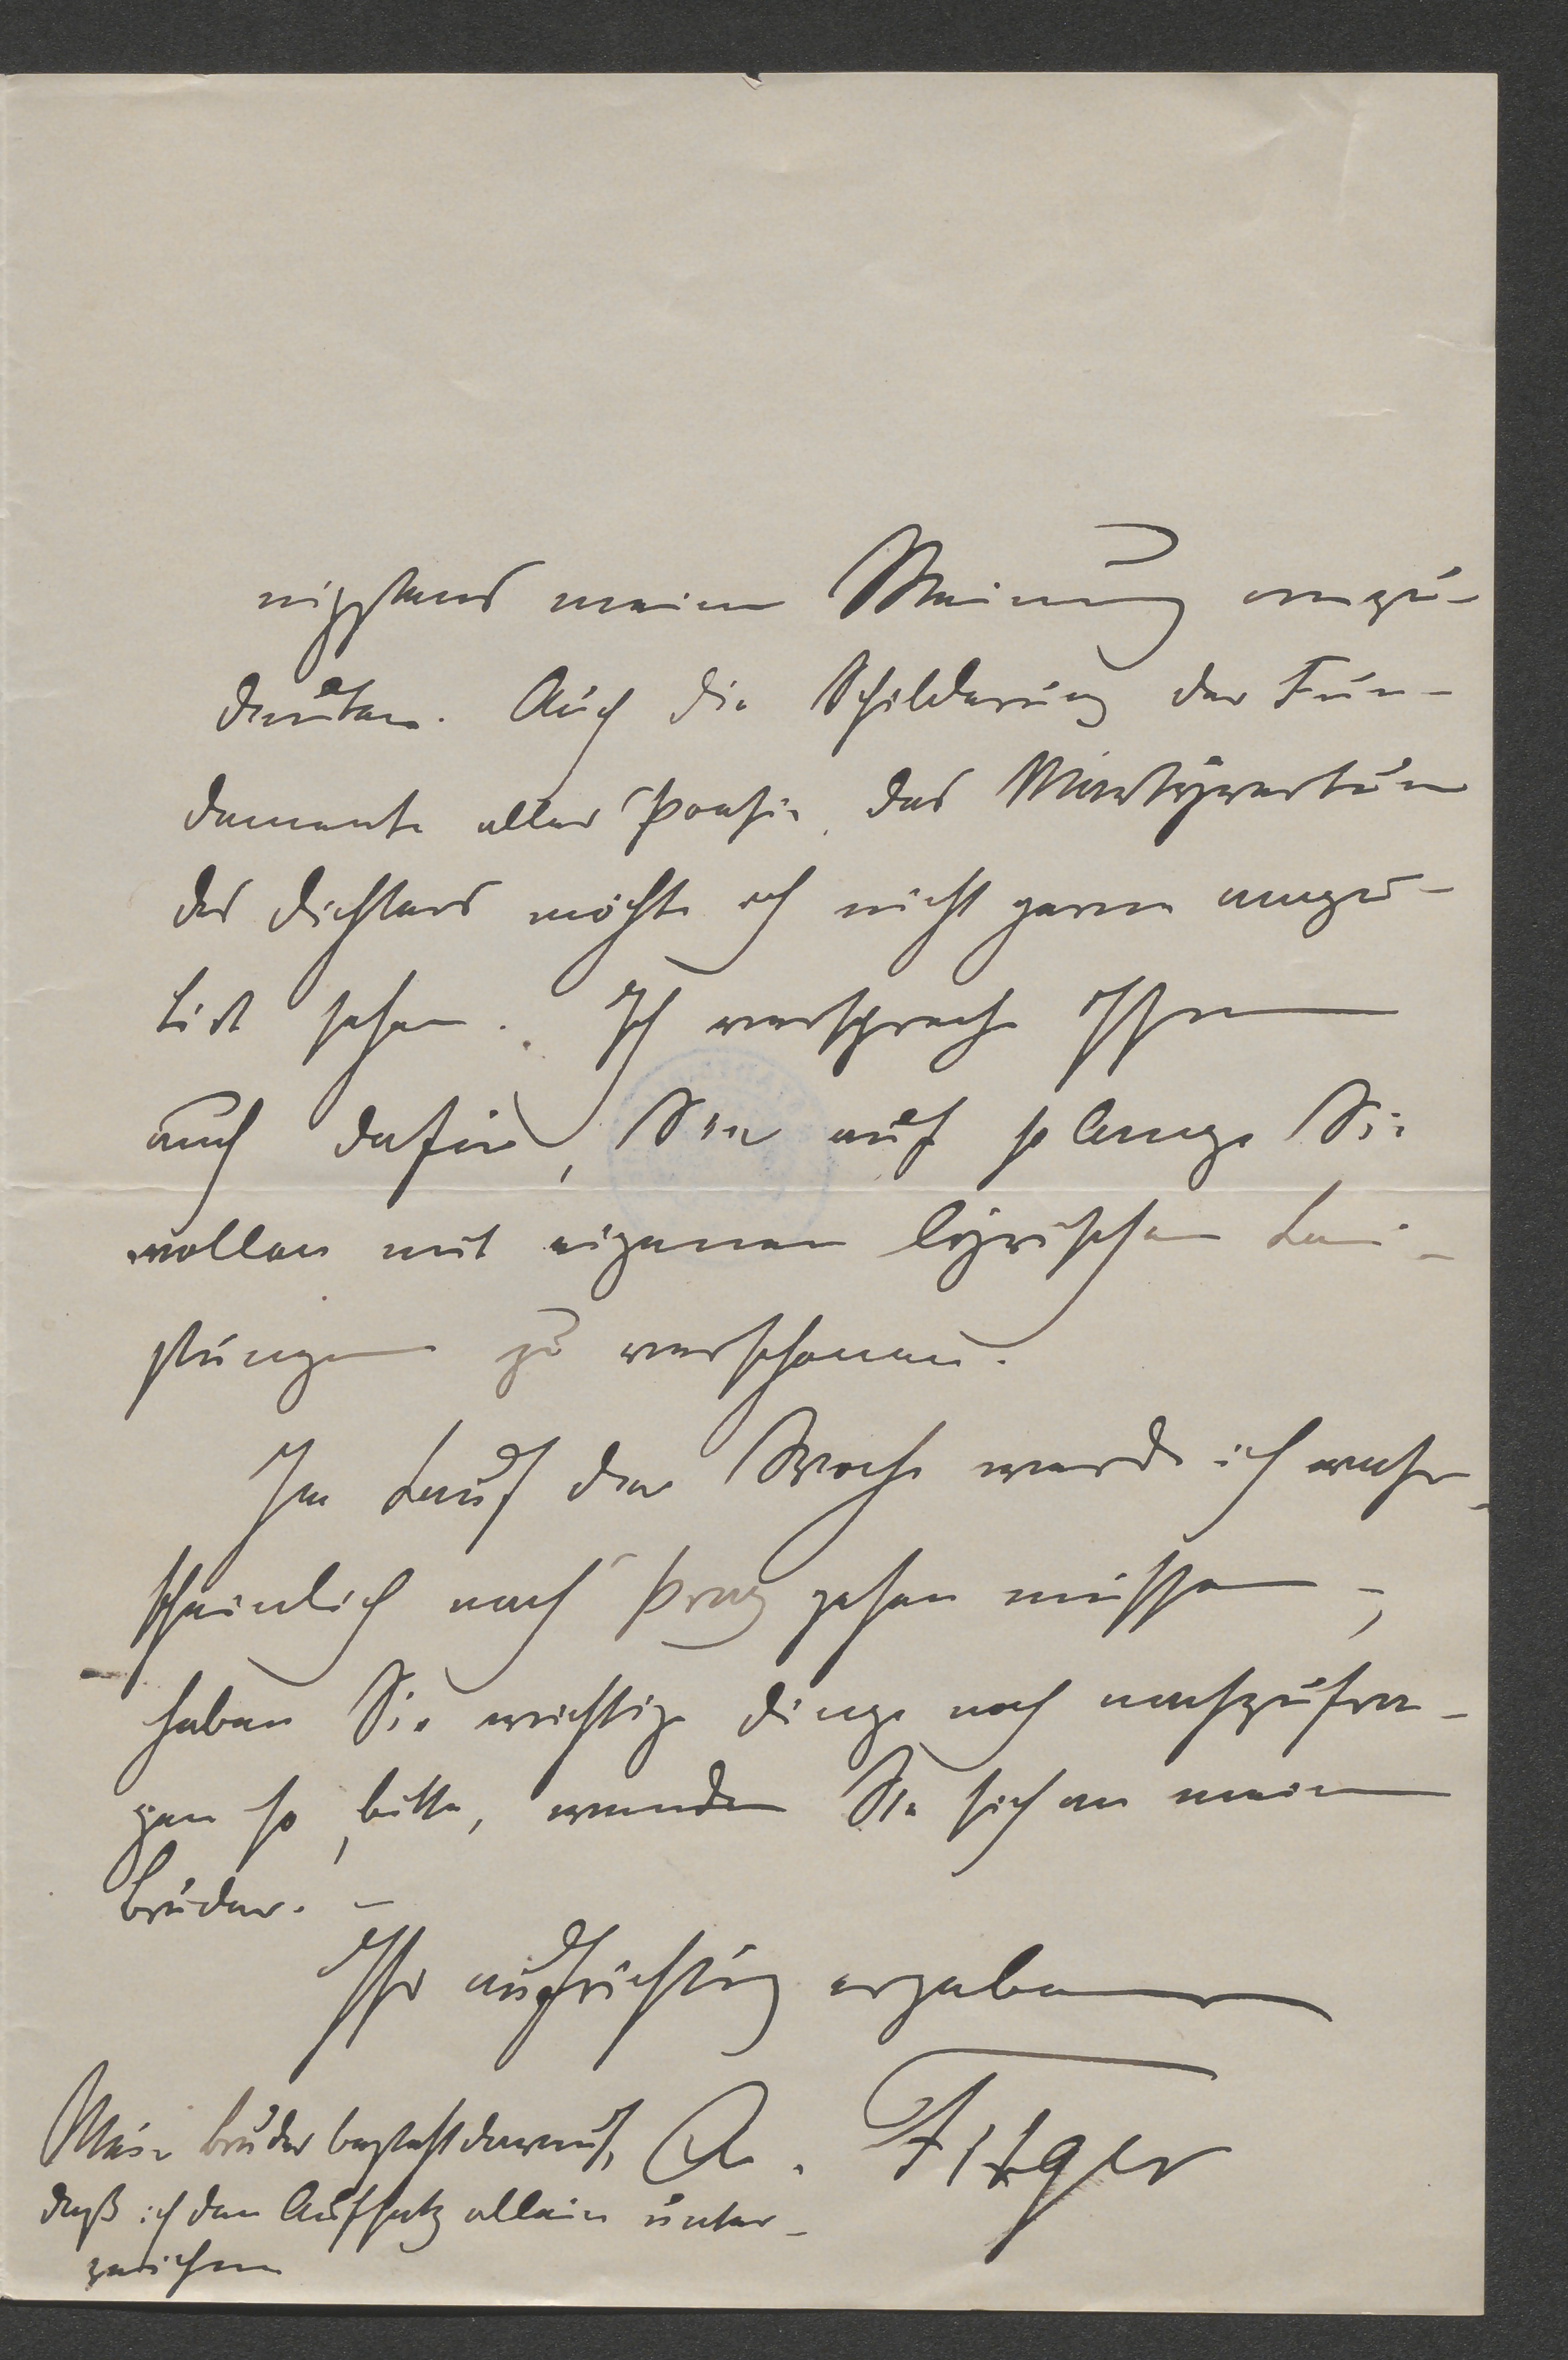 nigstens meine Meinung anzu-
deuten. Auch die Schilderung der Fun-
damente aller Poesie, das Märtyrertum
des Dichters möchte ich nicht gerne
sehen. Ich verspreche Ihnen
auch dafür, Sie auf solange Sie
wollen mit eigenen lyrischen Lei-
stungen zu verschonen.
Im Lauf der Woche werde ich wahr-
scheinlich nach Prag gehen müssen -,
haben Sie wichtige Dinge noch nachzufra-
gen so, bitte, wenden Sie sich an meinen
Bruder. -
Ihr aufrichtig ergebener
A. Fitger
Mein Bruder besteht darauf,
daß ich den Aufsatz allein unter-
zeichne